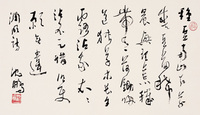 種豆南山下草
盛豆苗稀
晨興理荒穢
帶月荷鋤歸
道狹草木長夕
露沾我衣衣
沾不足惜但使
願無違
淵明詩 沈鵬